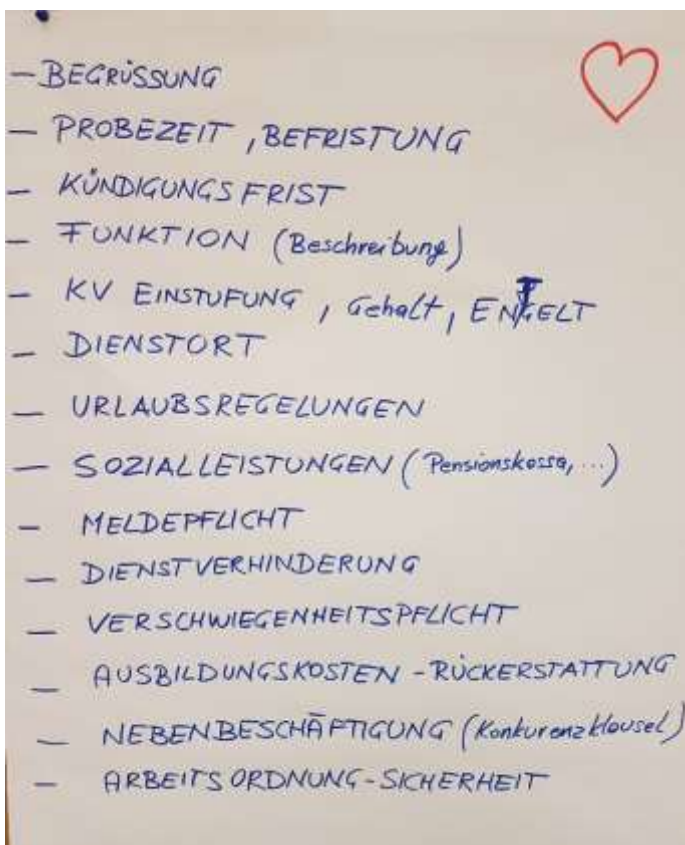 - BEGRÜSSUNG
- PROBEZEIT, BEFRISTUNG
- KÜNDIGUNGSFRIST
- FUNKTION (Beschreibung)
- KV EINSTUFUNG, Gehalt, ENTGELT
- DIENSTORT
- URLAUBSREGELUNGEN
- SOZIALLEISTUNGEN (Pensionskassa, ...)
- MELDEPFLICHT
- DIENSTVERHINDERUNG
- VERSCHWIEGENHEITSPFLICHT
- AUSBILDUNGSKOSTEN - RÜCKERSTATTUNG
- NEBENBESCHÄFTIGUNG (Konkurenzklausel)
- ARBEITSORDNUNG - SICHERHEIT